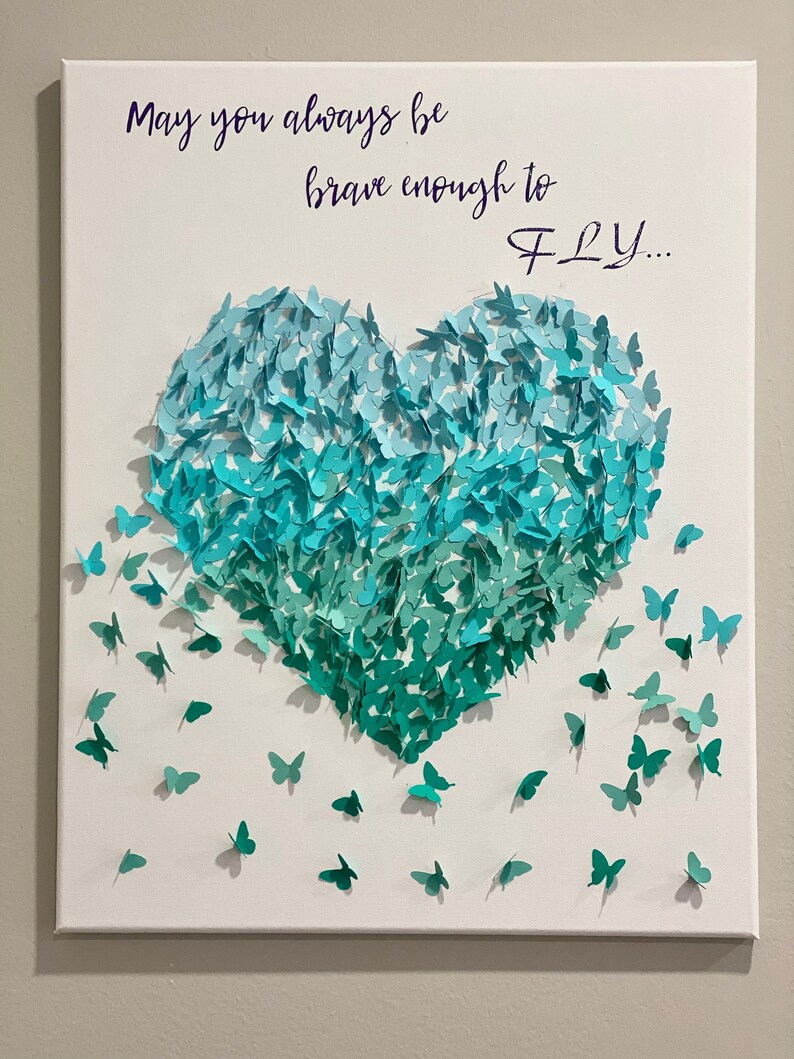 May you always be
brave enough to
FLY...